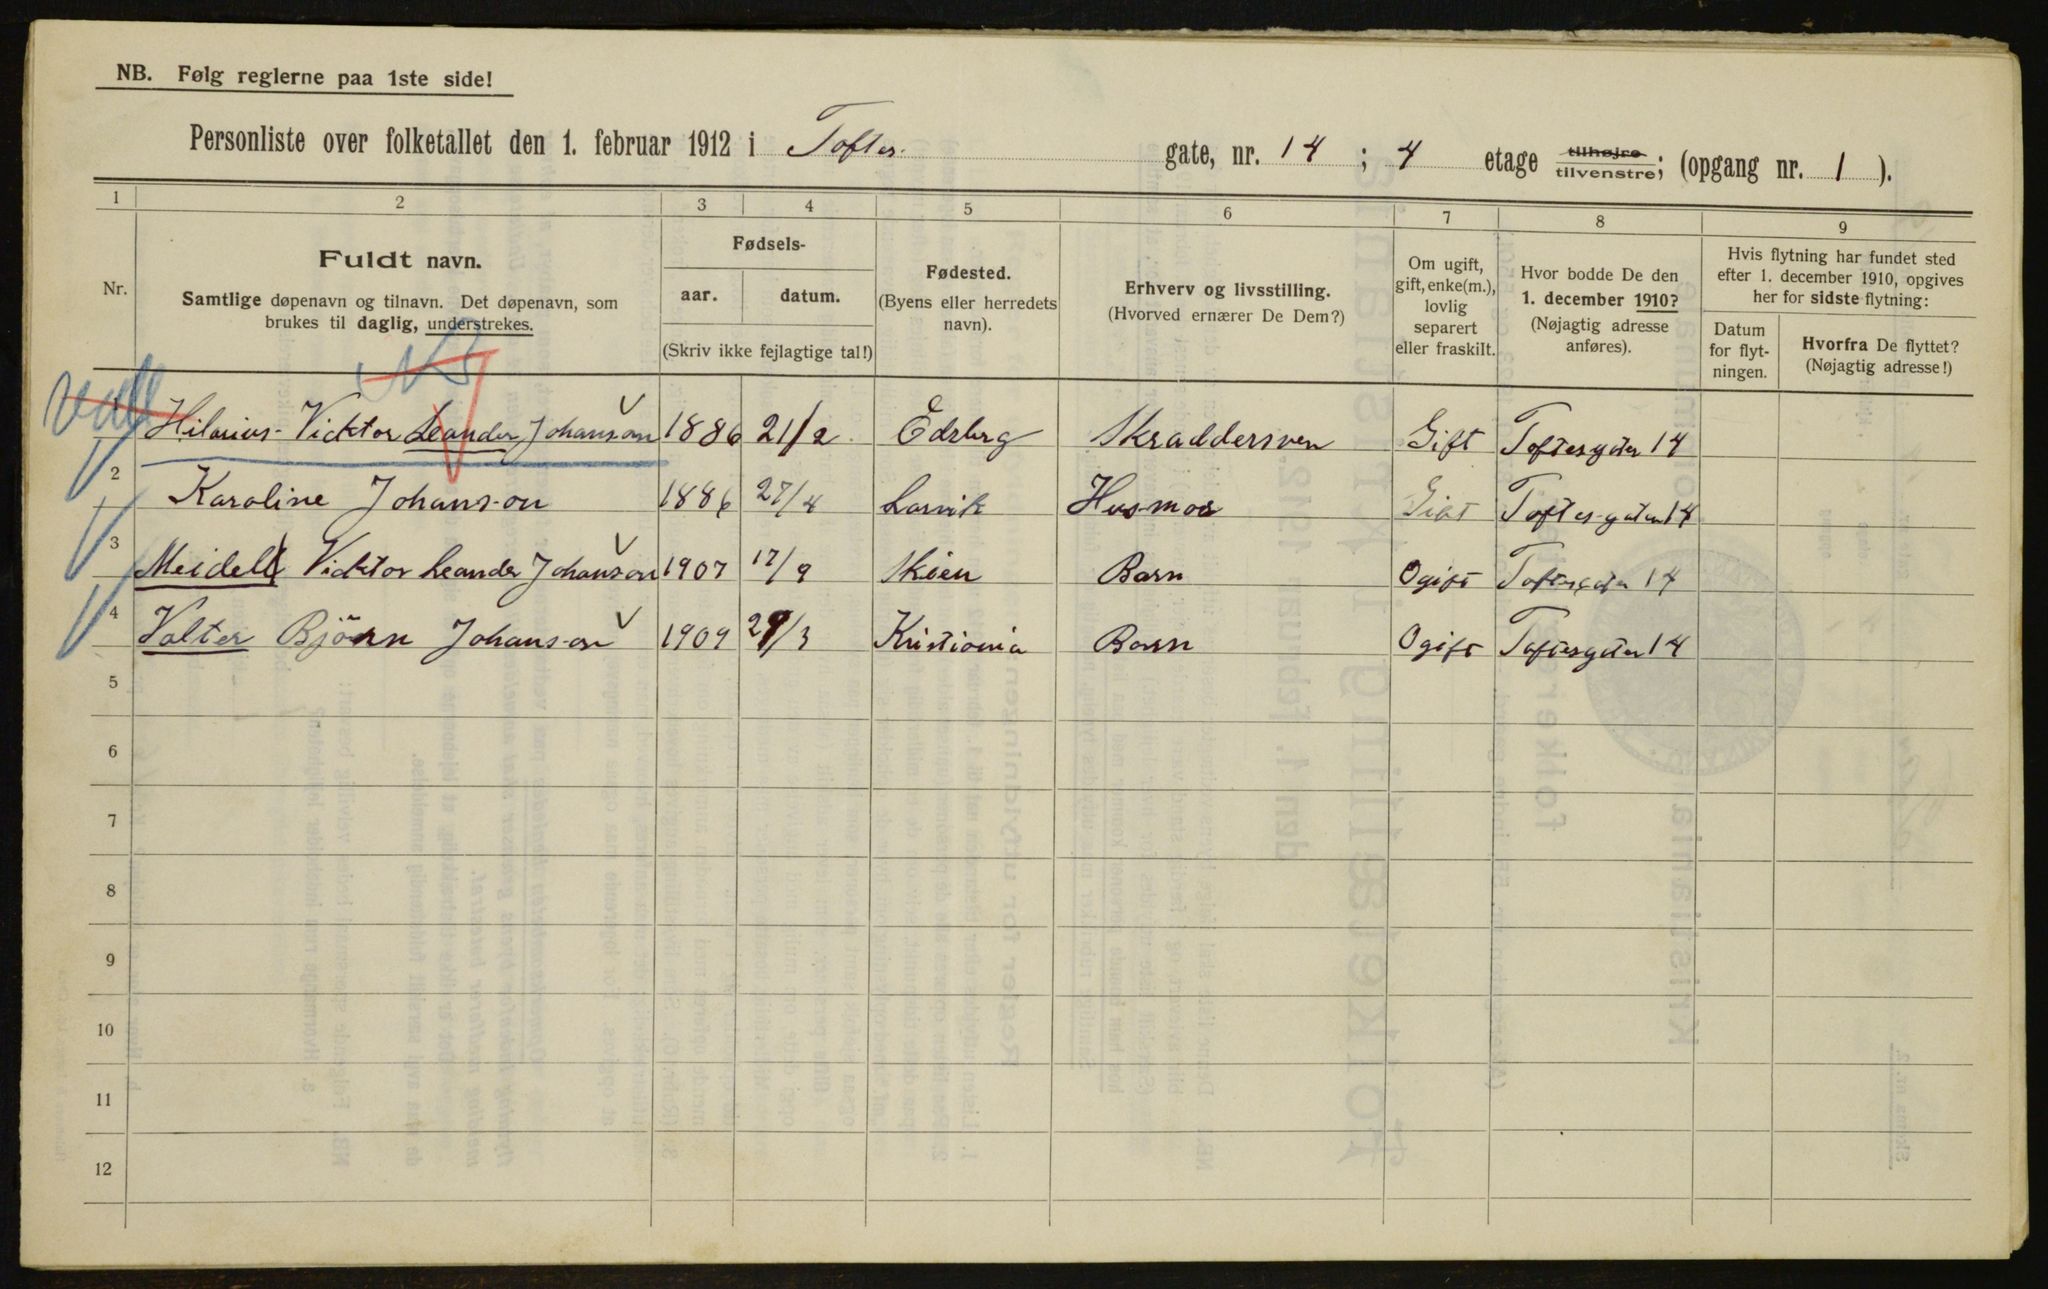 NB. Følg reglerne paa 1ste side!
Personliste over folketallet den 1. februar 1912 i Toftes. gate, nr. 14 ; 4 etage tilhøjre tilvenstre; (opgang nr. 1 ).
1 2 3 4 5 6 7 8 9
Nr.
Fuldt navn.
Samtlige døpenavn og tilnavn. Det døpenavn, som
brukes til daglig, understrekes.
Fødsels-
aar. datum.
(Skriv ikke fejlagtige tal!)
Fødested.
(Byens eller herredets
navn).
Erhverv og livsstilling.
(Hvorved ernærer De Dem?)
Om ugift,
gift, enke(m.),
lovlig
separert
eller fraskilt.
Hvor bodde De den
1. december 1910?
(Nøjagtig adresse
anføres).
Hvis flytning har fundet sted
efter 1. december 1910, opgives
her for sidste flytning:
Datum
for flyt-
ningen.
Hvorfra De flyttet?
(Nøjagtig adresse!)
1 Hilarius Vicktor Leander Johanson 1886 21/2 Edsberg Skraddersven Gift Toftesgaten 14
2 Karoline Johanson 1886 27/4 Larvik Husmor Gift Toftes-gaten 14
3 Meidell Vicktor Leander Johanson 1907 17/9 Skien Barn Ogift Toftesgaten 14
4 Valter Björn Johanson 1909 29/3 Kristiania Barn Ogift Toftesgaten 14
5
6
7
8
9
10
11
12